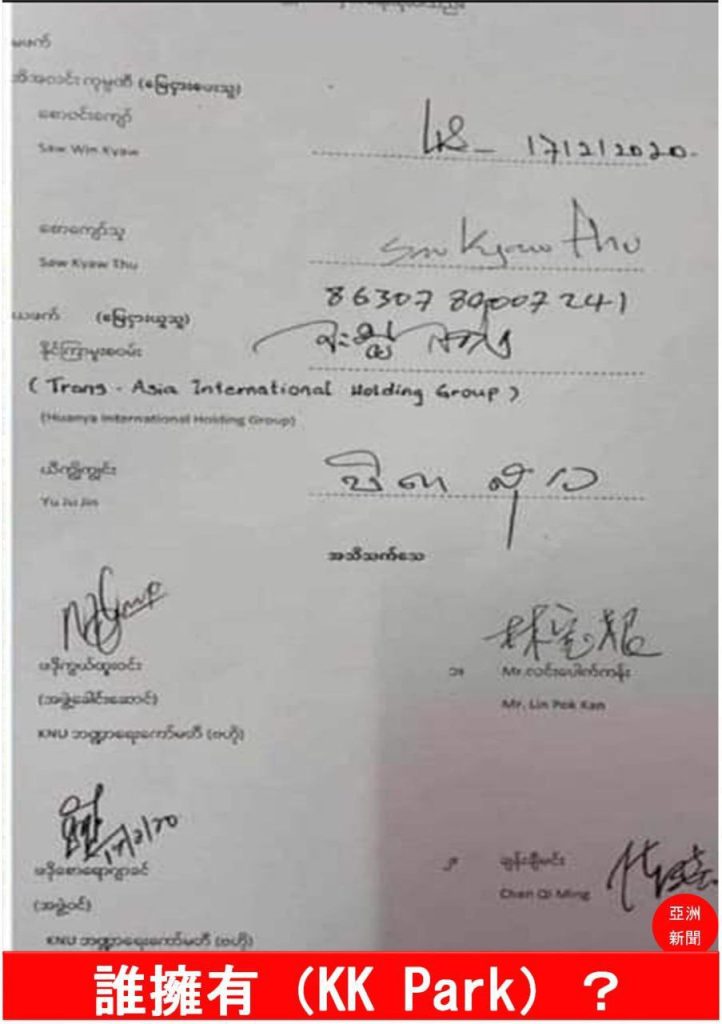 မဖက်
ဘီအလင်းကုမ္ပဏီ (မြေငှားပေးသူ)
စောဝင်းကျော်
Saw Win Kyaw
17/2/2020.
စောကျော်သူ
Saw Kyaw Thu
Saw Kyaw Thu
86307 80007 241
ယဖက် (မြေငှားယူသူ)
(Trans-Asia International Holding Group)
(Huanya International Holding Group)
Yu Jiu Jin
အသိသက်သေ
(အဖွဲ့ခေါင်းဆောင်)
KNU ဘဏ္ဍာရေးကော်မတီ (ဗဟို)
၁။ Mr.လင်းပေါက်ကန်း
Mr. Lin Pok Kan
17/2/20
(အဖွဲ့ဝင်)
KNU ဘဏ္ဍာရေးကော်မတီ (ဗဟို)
၂။ ချန်းချီမင်း
Chen Qi Ming
亞洲
新聞
誰擁有 (KK Park) ?